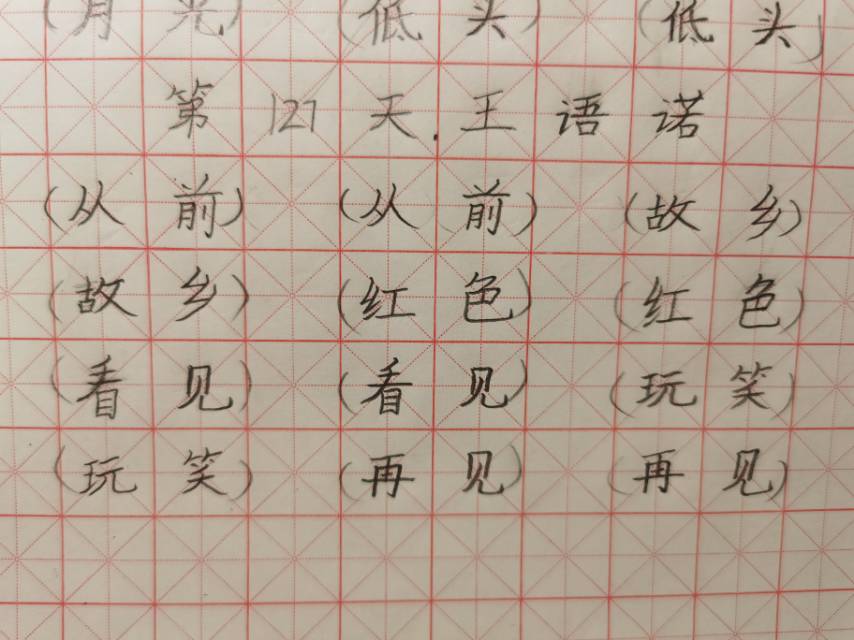 (月光) (低头) (低头)
第127天.王语诺
(从前) (从前) (故乡)
(故乡) (红色) (红色)
(看见) (看见) (玩笑)
(玩笑) (再见) (再见)